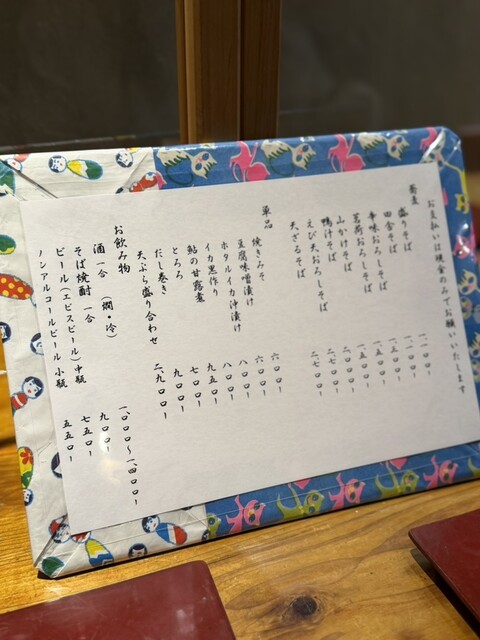 お支払いは現金のみでお願いいたします
蕎麦
盛りそば 一、一〇〇ー
田舎そば
辛味おろしそば 一、五〇〇ー
茗荷おろしそば 一、五〇〇ー
山かけそば 一、五〇〇ー
鴨汁そば
えび天おろしそば
天ざるそば 二、七〇〇ー
単品
焼きみそ 六〇〇ー
豆腐味噌漬け 六〇〇ー
ホタルイカ沖漬け 八〇〇ー
イカ黒作り 八〇〇ー
鮎の甘露煮 九五〇ー
とろろ 七〇〇ー
だし巻き 九〇〇ー
天ぷら盛り合わせ 二、九〇〇ー
お飲み物
酒一合 (燗・冷) 一、〇〇〇〜一、四〇〇ー
そば焼酎 一合 九〇〇ー
ビール(エビスビール)中瓶 七五〇ー
ノンアルコールビール 小瓶 五五〇ー